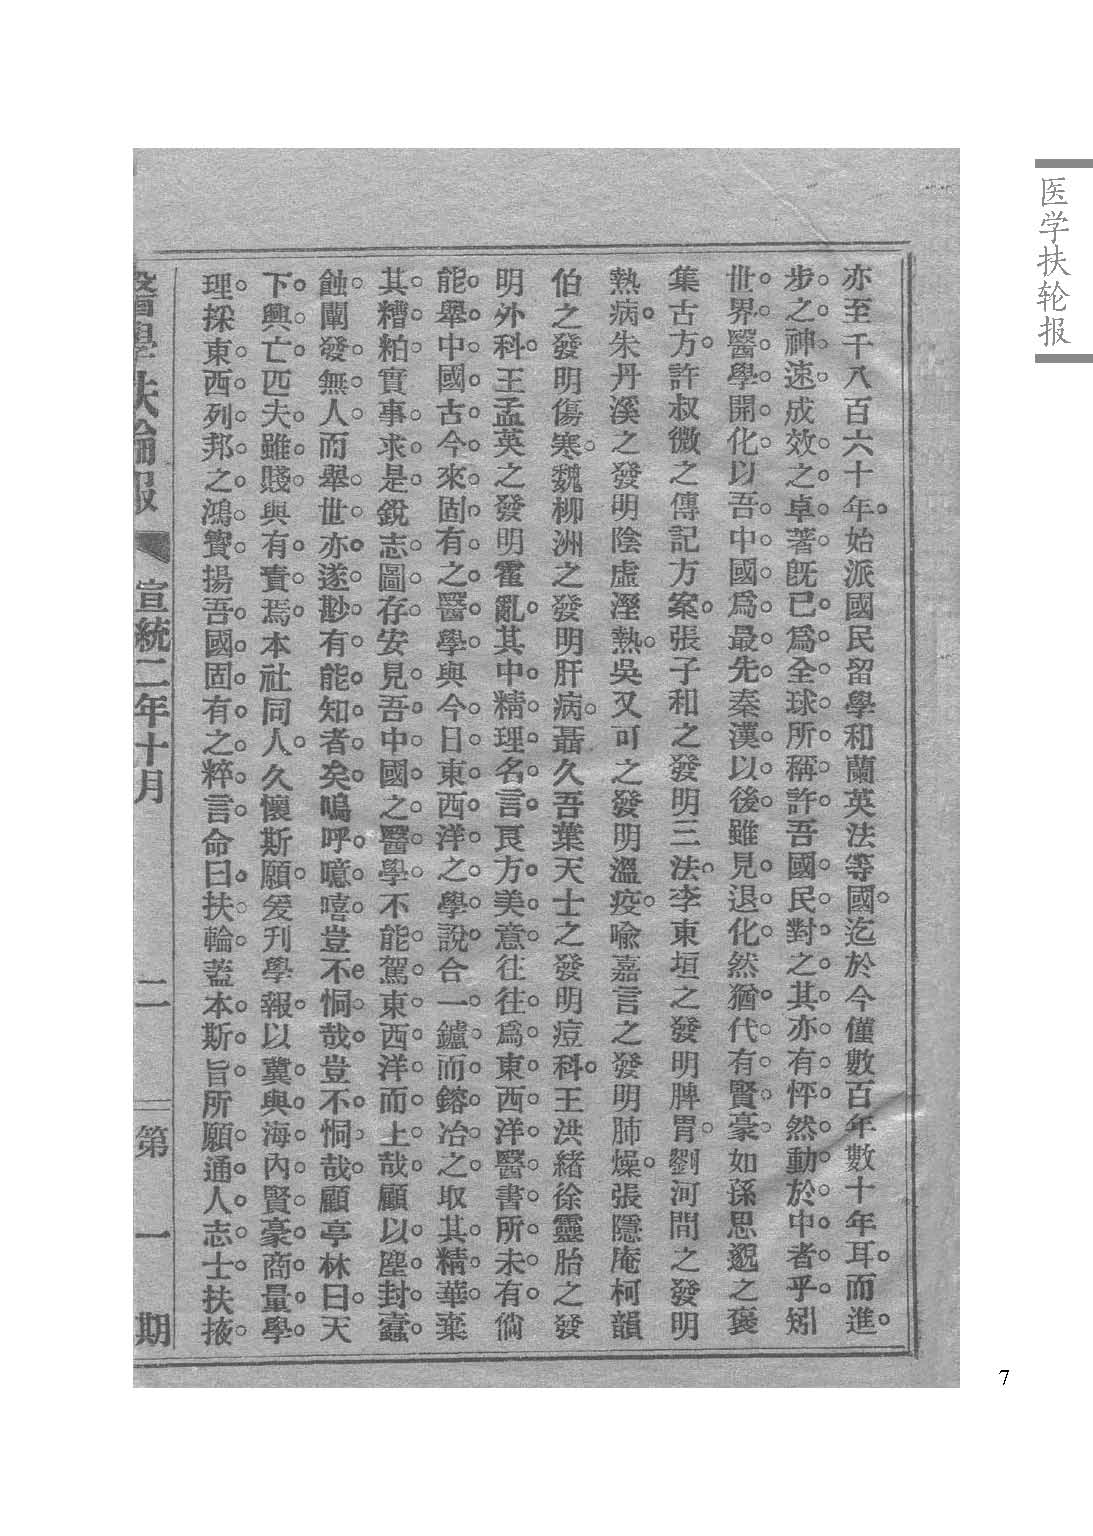 医学扶轮报
亦至千八百六十年。始派國民留學和蘭英法等國。迄於今僅數百年數十年耳。而進。
步。之。神。速。成效。之。卓。著。既。已。爲。全。球。所。稱。許。吾。國。民。對。之。其。亦。有。怦。然。動。於。中。者。乎。矧
世。界。醫。學。開。化。以。吾。中。國。爲。最。先。秦。漢。以。後。雖。見。退。化。然猶。代。有。賢。豪。如孫思邈之褒
集古方。許叔微之傳記方案。張子和之發明三法。李東垣之發明脾胃。劉河間之發明
熱病。朱丹溪之發明陰虛溼熱。吳又可之發明溫疫。喻嘉言之發明肺燥。張隱庵柯韻
伯之發明傷寒。魏柳洲之發明肝病。聶久吾葉天士之發明痘科。王洪緒徐靈胎之發
明外科。王孟英之發明霍亂。其中。精。理。名。言。良方。美。意。往。往。爲。東。西。洋。醫。書。所。未。有。倘
能。舉。中。國。古。今。來。固。有。之。醫。學。與今。日。東。西。洋。之。學。說。合一。鑪。而。鎔。冶。之。取。其。精。華。棄
其。糟。粕。實事。求。是。銳志。圖。存。安見。吾。中。國。之。醫。學。不能。駕。東西。洋而。上。哉。顧以。塵。封。蠹。
蝕。闡。發。無。人。而舉。世。亦。遂。尟。有。能。知。者。矣。嗚呼。噫。嘻。豈不。恫。哉。豈不。恫。哉。顧亭林曰。天
下。興。亡。匹夫。雖。賤。與有。責。焉。本社同人。久懷斯願。爰刊學報。以。冀。與。海。內。賢。豪。商。量。學。
理。採。東。西。列。邦。之。鴻。寶。揚吾。國。固。有。之。粹。言。命曰。扶。輪。蓋本。斯。旨。所願。通。人。志。士。扶掖。
醫學扶輪報 宣統二年十月 二 第一期
7